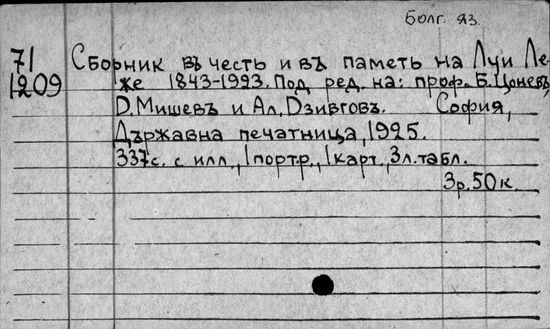 Болг. яз.
71 Сборник въ честь и въ паметь на Луи Ле-
1209 же 1843-1923. Под ред. на: проф. Б. Цоневъ,
D. Мишевъ и Ал. Dзивговъ. София,
Държавна печатница, 1925.
337 с. с илл., 1 портр., 1 карт., 3 л. табл.
3р. 50к.